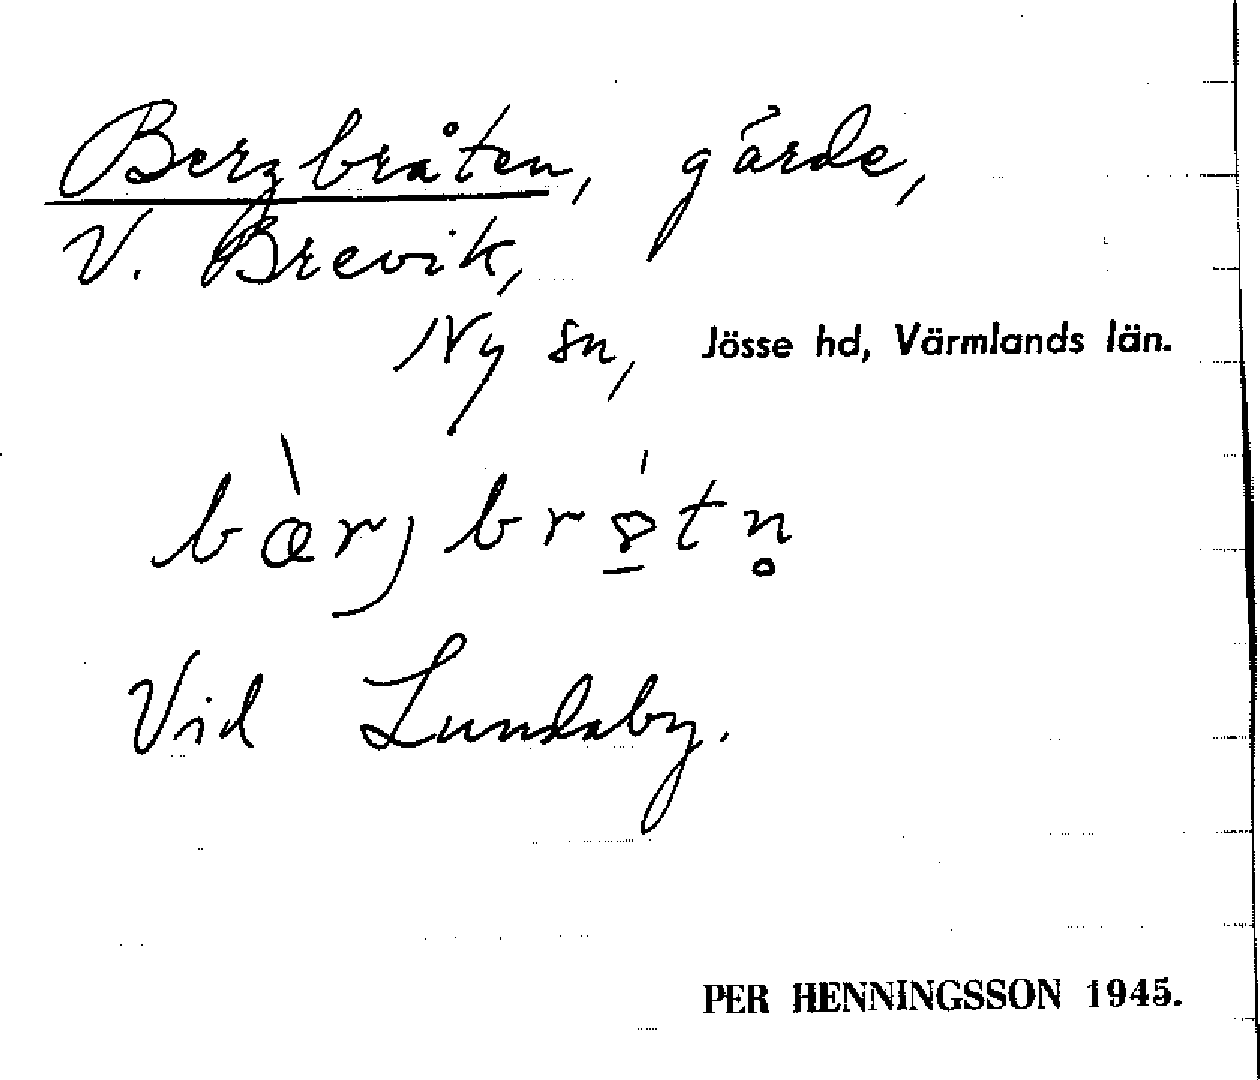 Bergbråten, gärde,
V. Brevik,
Ny sn, Jösse hd, Värmlands län.
bæ̀rjbrǻtn̥
Vid Lundaby.
PER HENNINGSSON 1945.